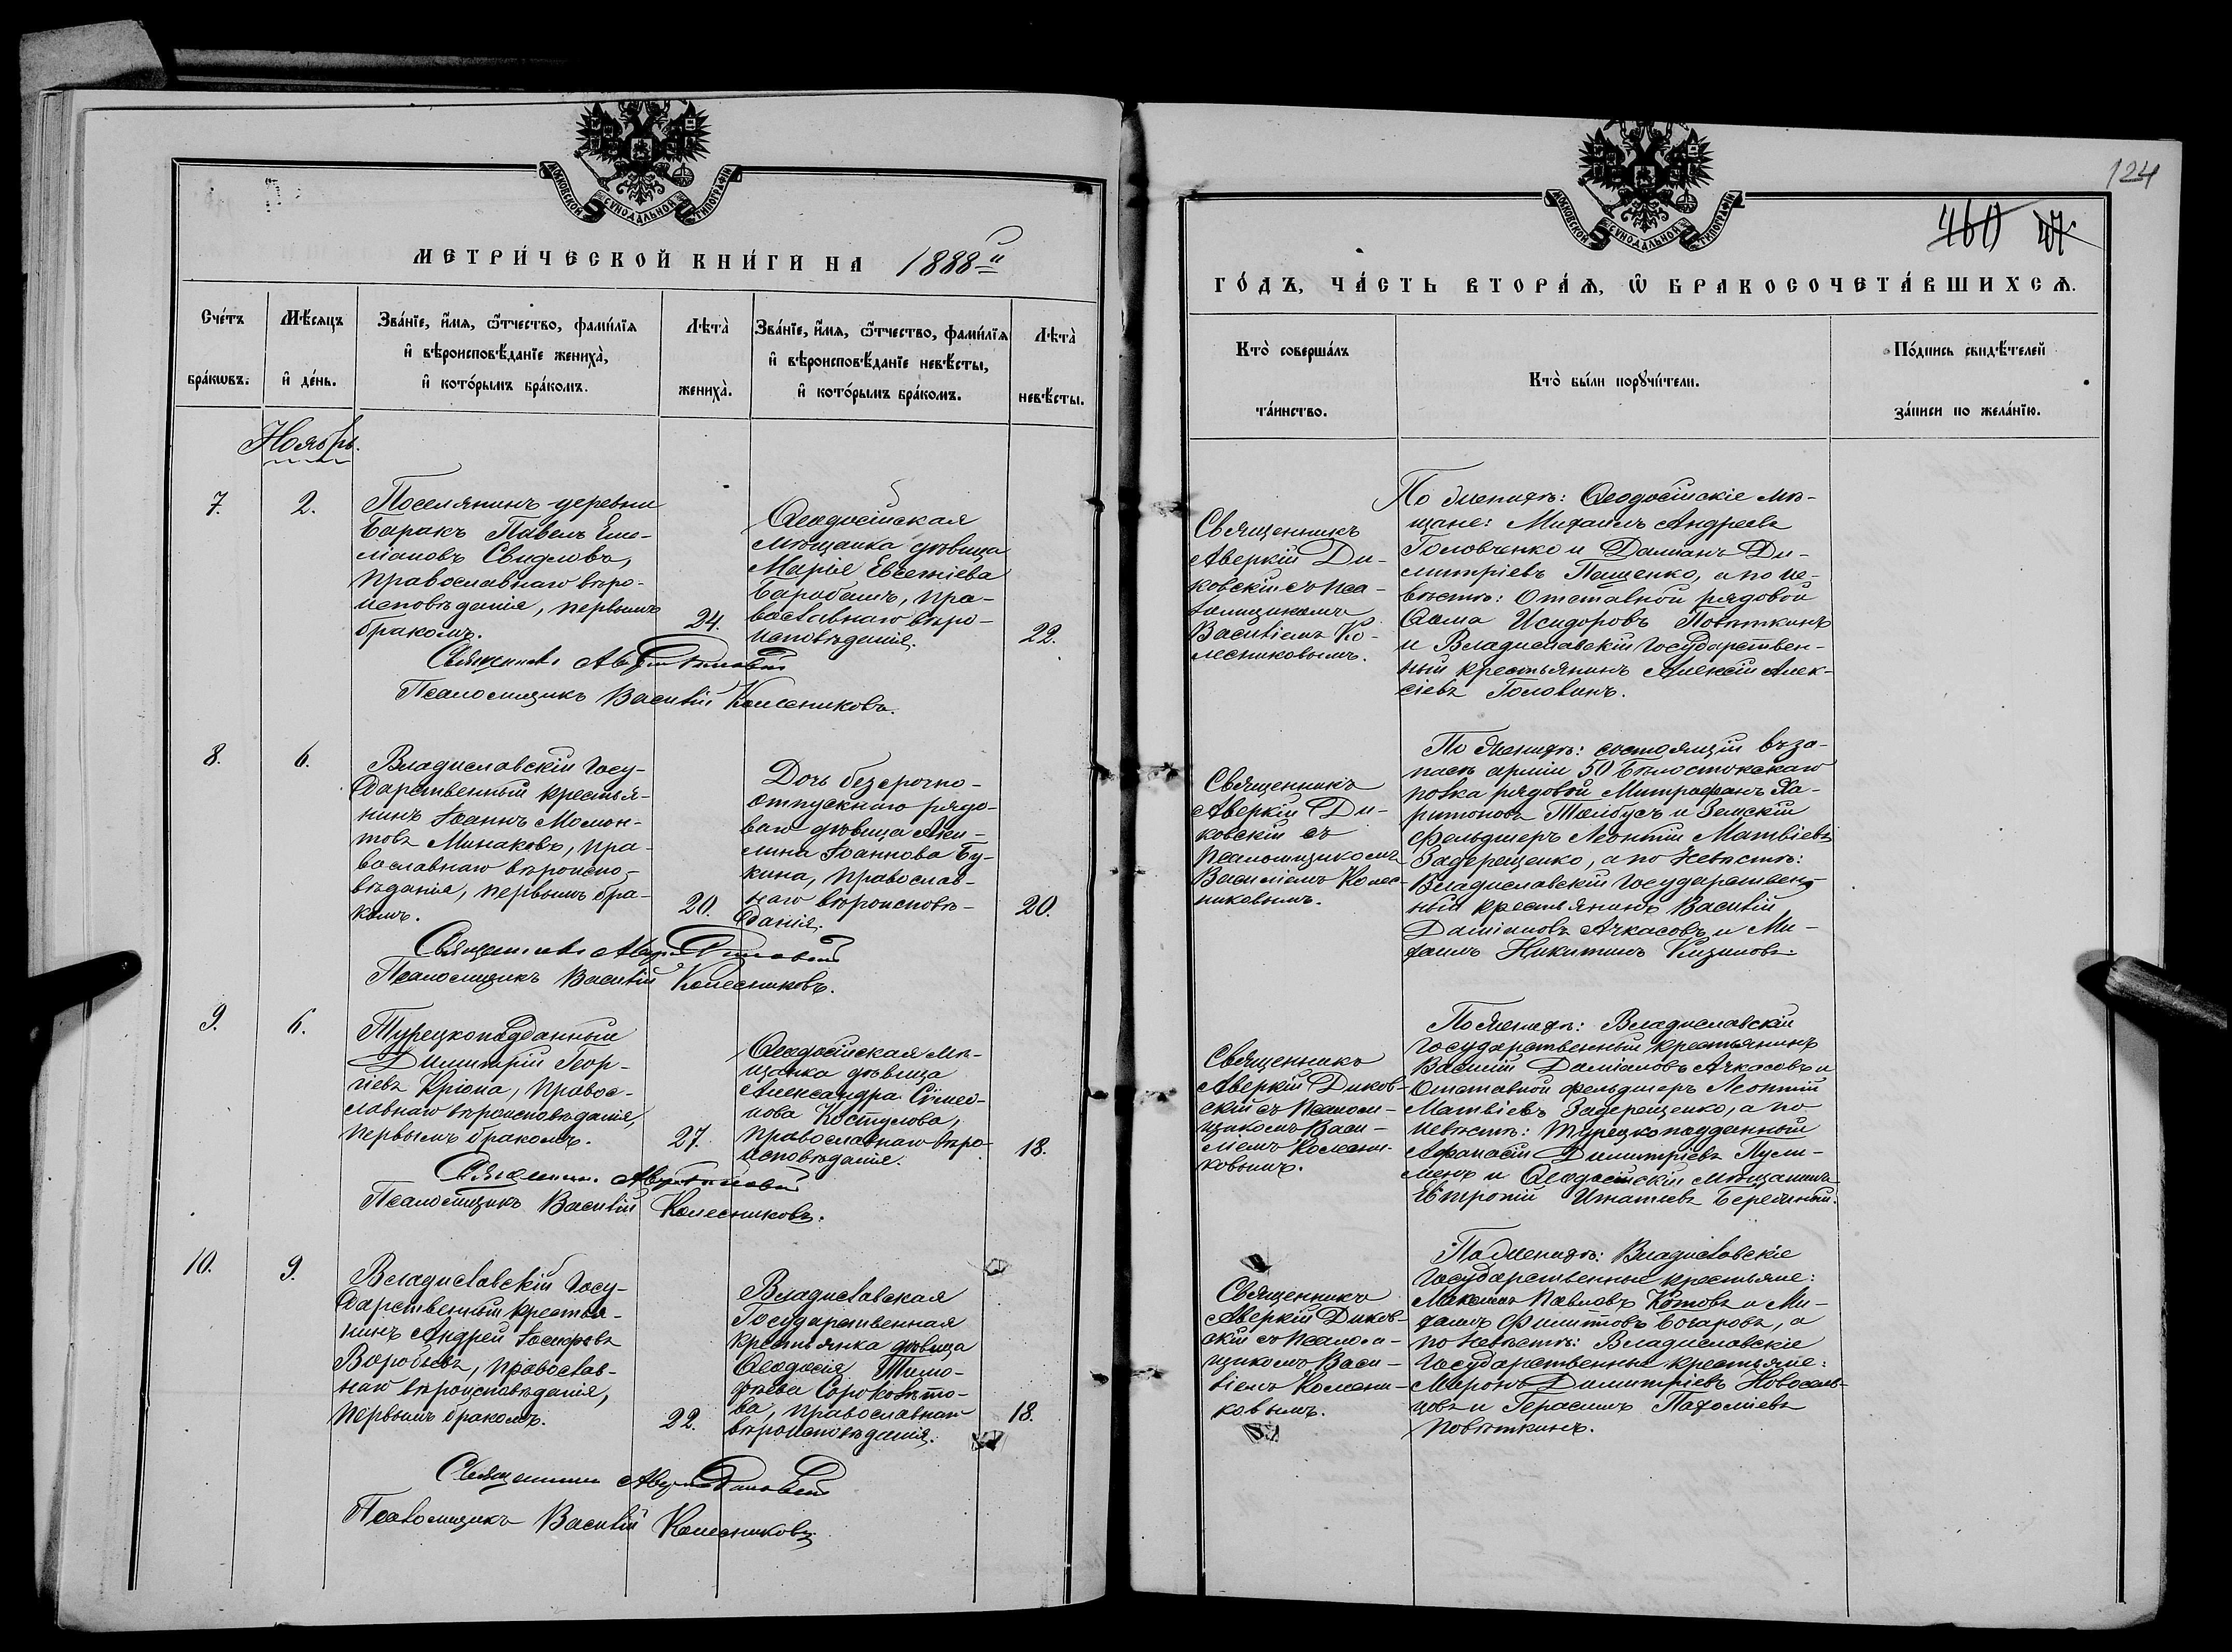 МОСКОВСКОЙ СУНОДАЛЬНОЙ ТИПОГРАФІИ
МЕТРИ́ЧЕСКОЙ КНИ́ГИ НА 1888й
Сче́тъ бра́кωвъ.
Мѣ́сяцъ и҆ де́нь.
Зва́нїе, и҆́мѧ, ѻ҆́тчество, фамилїѧ
и҆ вѣроисповѣ́данїе жениха̀,
и҆ кото́рымъ бра́комъ.
Лѣта̀ жениха̀.
Зва́нїе, и҆́мѧ, ѻ҆́тчество, фамилїѧ
и҆ вѣроисповѣ́данїе невѣ́сты,
и҆ кото́рымъ бра́комъ.
Лѣта̀ невѣ́сты.
Ноябрь.
7.
2.
Поселянинъ деревни
Баракъ Павелъ Еме-
ліановъ Свидловъ,
православнаго вѣро-
исповѣданія, первымъ
бракомъ.
24.
Ѳеодосійская
мѣщанка дѣвица
Марья Евсевіева
Барабашъ, пра-
вославнаго вѣро-
исповѣданія.
22.
Священникъ Аверкій Диковскій
Псаломщикъ Василій Колесниковъ.
8.
6.
Владиславскій Госу-
дарственный крестья-
нинъ Іоаннъ Мамон-
товъ Минаковъ, пра-
вославнаго вѣроиспо-
вѣданія, первымъ бра-
комъ.
20.
Дочь безсрочно-
отпускного рядо-
ваго дѣвица Аки-
лина Іоаннова Бу-
кина, православ-
наго вѣроисповѣ-
данія.
20.
Священникъ Аверкій Диковскій
Псаломщикъ Василій Колесниковъ.
9.
6.
Турецкоподданный
Димитрій Геор-
гіевъ Кріона, правос-
славнаго вѣроисповѣданія,
первымъ бракомъ.
27.
Ѳеодосійская мѣ-
щанка дѣвица
Александра Сѵмео-
нова Костулова,
православнаго вѣро-
исповѣданія.
18.
Священникъ Аверкій Диковскій
Псаломщикъ Василій Колесниковъ.
10.
9.
Владиславскій Госу-
дарственный крестья-
нинъ Андрей Іосифовъ
Воробьевъ, православ-
наго вѣроисповѣданія,
первымъ бракомъ.
22.
Владиславская
Государственная
крестьянка дѣвица
Ѳеодосія Тимо-
фѣева Сороколѣто-
ва, православнаго
вѣроисповѣданія.
18.
Священникъ Аверкій Диковскій
Псаломщикъ Василій Колесниковъ
124
МОСКОВСКОЙ СУНОДАЛЬНОЙ ТИПОГРАФІИ
460
ГО́ДЪ, ЧА́СТЬ ВТОРА́Ѧ, Ѡ҆ БРАКОСОЧЕТА́ВШИХСѦ.
Кто̀ соверша́лъ та́инство.
Кто̀ бы́ли порꙋчи́тели.
По́дпись свидѣ́телей за́писи по жела́нїю.
Священникъ
Аверкій Ди-
ковскій съ пса-
ломщикомъ
Василіемъ Ко-
лесниковымъ.
По женихѣ: Ѳеодосійскіе мѣ-
щане: Михаилъ Андреевъ
Головченко и Даміанъ Ди-
митріевъ Пащенко, а по не-
вѣстѣ: Отставной рядовой
Савва Исидоровъ Повѣткинъ
и Владиславскій государствен-
ный крестьянинъ Алексій Алек-
сіевъ Головинъ.
Священникъ
Аверкій Ди-
ковскій съ
псаломщикомъ
Василіемъ Колес-
никовымъ.
По женихѣ: состоящій въ за-
пасѣ арміи 50 Бѣлостокскаго
полка рядовой Митрофанъ Ха-
ритоновъ Толбусъ и Земскій
фельдшеръ Леонтій Матвіевъ
Задерещенко, а по невѣстѣ:
Владиславскій государствен-
ный крестьянинъ Василій
Даміановъ Ачкасовъ и Ми-
хаилъ Никитинъ Кизиловъ.
Священникъ
Аверкій Диков-
скій съ псалом-
щикомъ Васи-
ліемъ Колесни-
ковымъ.
По женихѣ: Владиславскій
государственный крестьянинъ
Василій Даміановъ Ачкасовъ и
Отставной фельдшеръ Леонтій
Матвіевъ Задерещенко, а по
невѣстѣ: Турецкоподданный
Афанасій Димитріевъ Пули-
менъ и Ѳеодосійскій мѣщанинъ
Евтропій Игнатіевъ Бережный.
Священникъ
Аверкій Диков-
скій съ псалом-
щикомъ Васи-
ліемъ Колесни-
ковымъ.
По женихѣ: Владиславскіе
Государственные крестьяне:
Максимъ Павловъ Котовъ и Ми-
хаилъ Филиповъ Бочаровъ, а
по невѣстѣ: Владиславскіе
Государственные крестьяне:
Миронъ Димитріевъ Новосель-
цовъ и Герасимъ Пахоміевъ
Повѣткинъ.